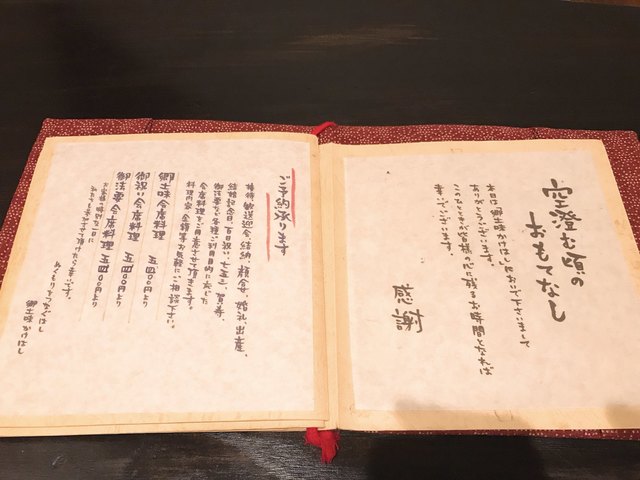 空澄む頃の
おもてなし
本日は「郷土味かけはし」においで下さいまして
ありがとうございます。
このひとときが皆様の心に残るお時間となれば
幸いでございます。
感謝
ご予約承ります
接待、歓送迎会、結納、顔合せ、婚礼、出産、
結婚記念日、百日祝い、七五三、賀寿、
御法要など各種ご利用目的に応じた
会席料理をご用意させて頂きます。
料理内容、金額等お気軽にご相談下さい。
郷土味会席料理 五四〇〇円より
御祝い会席料理 五四〇〇円より
御法要会席料理 五四〇〇円より
大切な時の一日に
私たちもさせて頂けたら幸いです。
ぬくもりをつなぐはし
郷土味かけはし